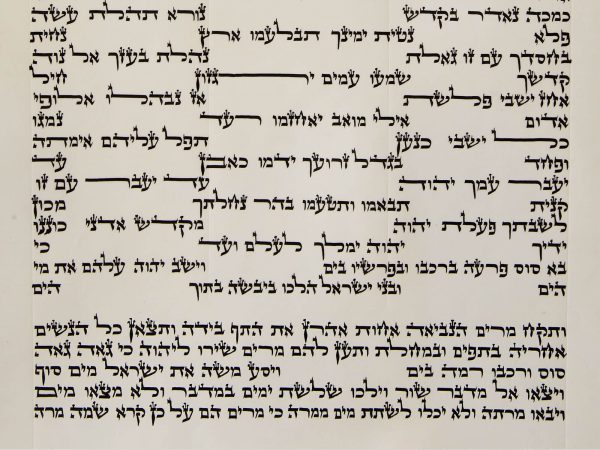 כמכה נאדר בקדש נורא תהלת עשה
פלא נטית ימינך תבלעמו ארץ נחית
בחסדך עם זו גאלת נהלת בעזך אל נוה
קדשך שמעו עמים ירגזון חיל
אחז ישבי פלשת אז נבהלו אלופי
אדום אילי מואב יאחזמו רעד נמגו
כל ישבי כנען תפל עליהם אימתה
ופחד בגדל זרועך ידמו כאבן עד
יעבר עמך יהוה עד יעבר עם זו
קנית תבאמו ותטעמו בהר נחלתך מכון
לשבתך פעלת יהוה מקדש אדני כוננו
ידיך יהוה ימלך לעלם ועד כי
בא סוס פרעה ברכבו ובפרשיו בים וישב יהוה עלהם את מי
הים ובני ישראל הלכו ביבשה בתוך הים
ותקח מרים הנביאה אחות אהרן את התף בידה ותצאן כל הנשים
אחריה בתפים ובמחלת ותען להם מרים שירו ליהוה כי גאה גאה
סוס ורכבו רמה בים ויסע משה את ישראל מים סוף
ויצאו אל מדבר שור וילכו שלשת ימים במדבר ולא מצאו מים
ויבאו מרתה ולא יכלו לשתת מים ממרה כי מרים הם על כן קרא שמה מרה